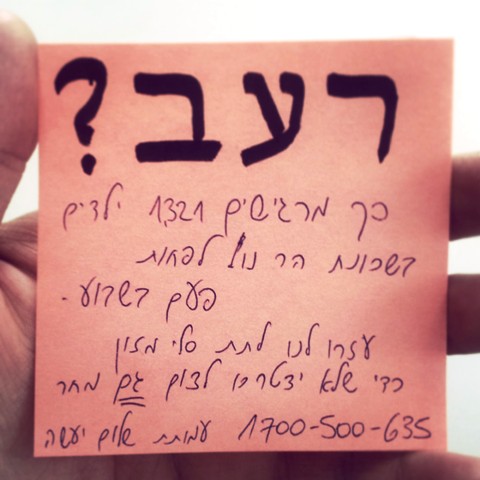 רעב?
כך מרגישים 1321 ילדים
בשכונת הר נוף לפחות
פעם בשבוע.
עזרו לנו לתת סלי מזון
כדי שלא יצטרכו לצום גם מחר
1700-500-635 עמותת שלום יעשה